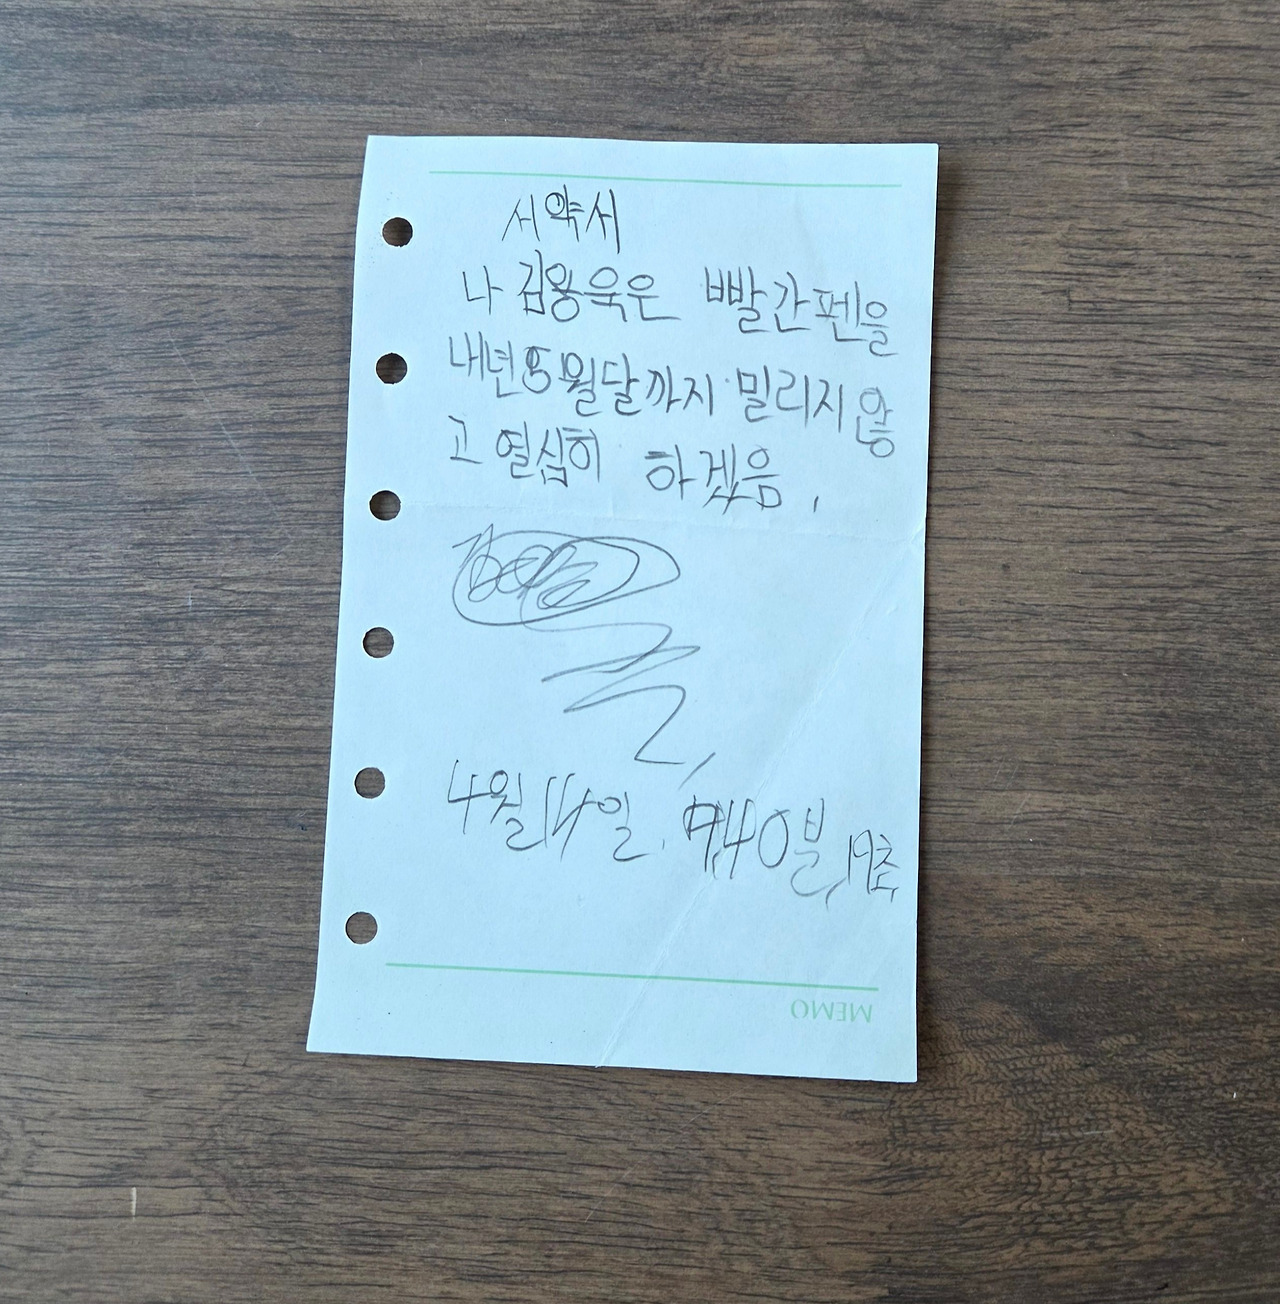 서약서
나 김용욱은 빨간펜을
내년 5월달까지 밀리지 않
고 열심히 하겠음.
4월 14일. 40분, 19초,
MEMO